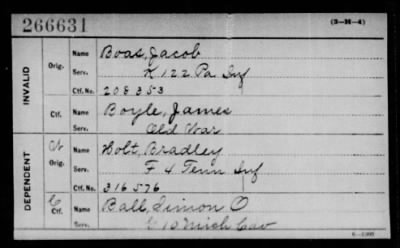 266631 (3-M-4)
INVALID
Orig. Name Boas, Jacob
Serv. K 122 Pa Inf
Ctf. No. 208353
Ctf. Name Boyle, James
Serv. Old War
DEPENDENT
Orig. Name Holt, Bradley
Serv. F 4 Tenn Inf
Ctf. No. 316576
C Ctf. Name Ball, Simon O
Serv. 10 Mich Cav